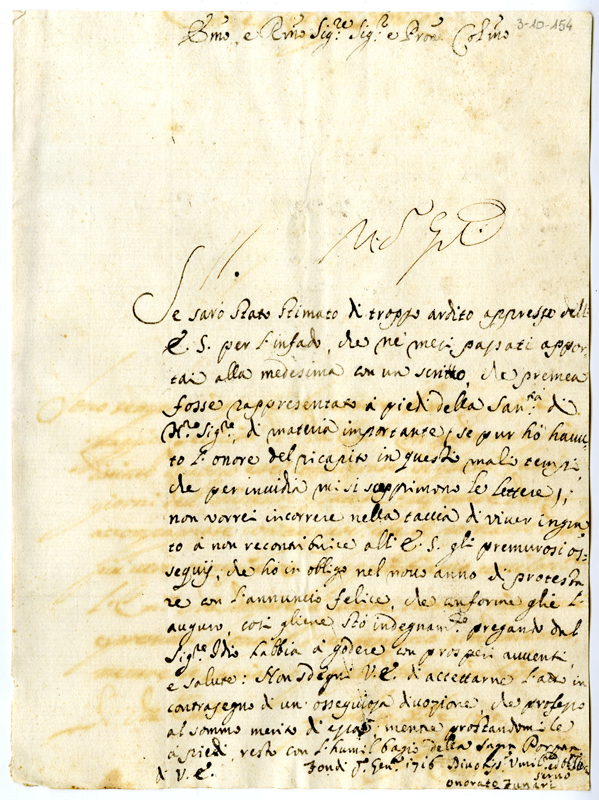 3-10-154
Emo, e Rmo Sigre Sigr e Prone Colmo
Se sarò stato stimato di troppo ardito appresso dell'
E. S. per l'infado, che ne' mesi passati appor-
tai alla medesima con un scritto, che premea
fosse rappresentato a' piedi della San.tà di
N.ro Sig.re, di materia importante (se pur hò havu-
to l'onore del ricapito in questi mali tempi,
che per invidia mi si sopprimono le lettere);
non vorrei incorrere nella taccia di viver ingra-
to à non recontribuire all'E. S. gli premurosi os-
sequij, che hò in obligo nel novo anno di protesta-
re con l'annuncio felice, che conforme glie l'
auguro, così gliene stò indegnam.te pregando dal
Sig.re Idio habbia à godere con prosperi avventi,
e salute: Non sdegni V. E. di accettarne l'atto in
contrasegno di un'ossequiosa divozione, che professo
al sommo merito di essa; mentre prostandomele
à piedi, resto con l'humil bagio della sagra Porpora
di V. E. Fondi Gen.o 1716 Divotis.o Umil.o
servo
Onorato Funari